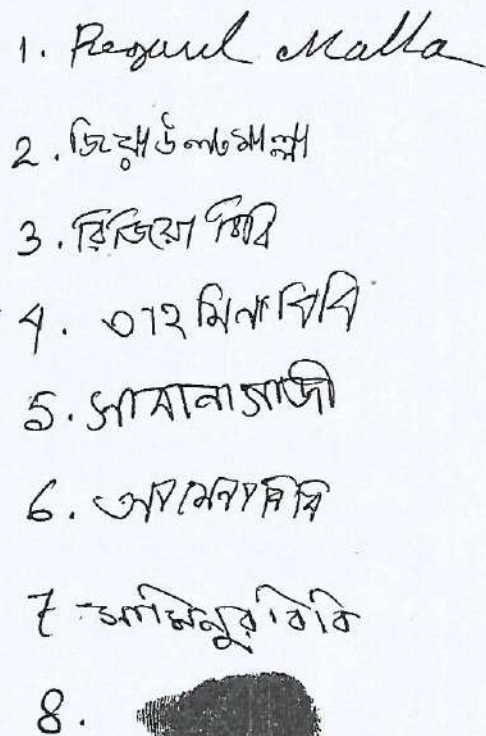 1. Rezaul Malla
2. জিয়াউল মাল্লা
3. রিজিয়া বিবি
4. তাহমিনা বিবি
5. সাবানা গাজী
6. আমেনা বিবি
7 - সামিনুর বিবি
8.